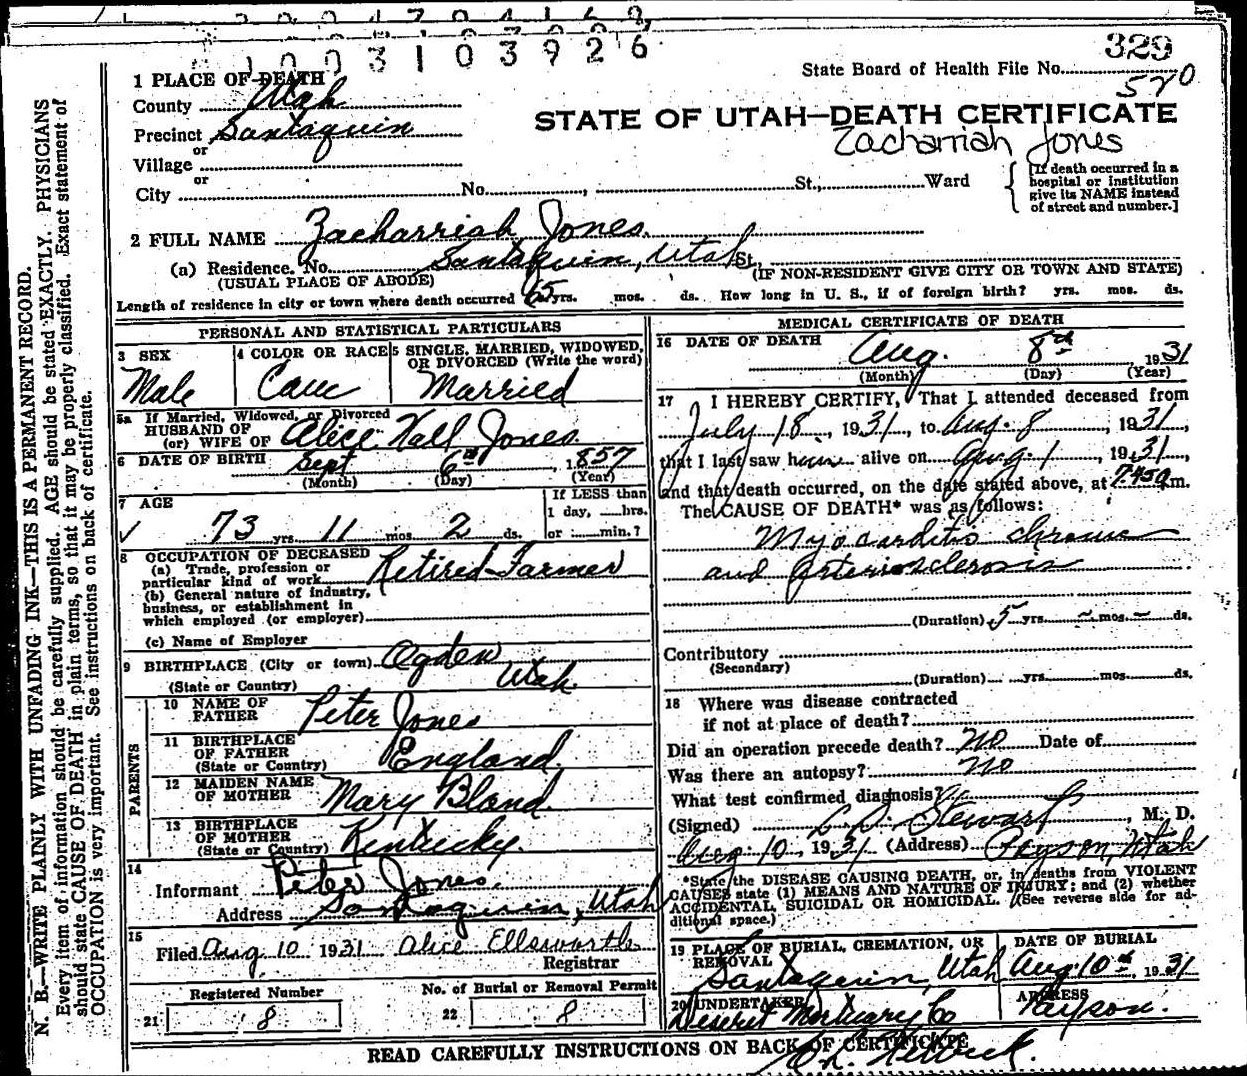 003103926
329
State Board of Health File No.
570
STATE OF UTAH—DEATH CERTIFICATE
Zacharriah Jones
1 PLACE OF DEATH
County Utah
Precinct Santaquin
or
Village
or
City No. , St., Ward
[If death occurred in a
hospital or institution
give its NAME instead
of street and number.]
2 FULL NAME Zacharriah Jones.
(a) Residence. No. Santaquin, Utah St.,
(USUAL PLACE OF ABODE) (IF NON-RESIDENT GIVE CITY OR TOWN AND STATE)
Length of residence in city or town where death occurred 65 yrs. mos. ds. How long in U. S., if of foreign birth? yrs. mos. ds.
PERSONAL AND STATISTICAL PARTICULARS
3 SEX
Male
4 COLOR OR RACE
Cauc
5 SINGLE, MARRIED, WIDOWED,
OR DIVORCED (Write the word)
Married
5a If Married, Widowed, or Divorced
HUSBAND OF
(or) WIFE OF Alice Hall Jones.
6 DATE OF BIRTH Sept 6th, 1857
(Month) (Day) (Year)
7 AGE
73 yrs. 11 mos. 2 ds.
If LESS than
1 day, hrs.
or min.?
8 OCCUPATION OF DECEASED
(a) Trade, profession or
particular kind of work Retired Farmer
(b) General nature of industry,
business, or establishment in
which employed (or employer)
(c) Name of Employer
9 BIRTHPLACE (City or town) Ogden
(State or Country) Utah.
PARENTS
10 NAME OF
FATHER Peter Jones
11 BIRTHPLACE
OF FATHER
(State or Country) England.
12 MAIDEN NAME
OF MOTHER Mary Bland.
13 BIRTHPLACE
OF MOTHER
(State or Country) Kentucky.
14
Informant Peter Jones.
Address Santaquin, Utah
15
Filed Aug 10 1931 Alice Ellsworth
Registrar
Registered Number
21 8
No. of Burial or Removal Permit
22 8
MEDICAL CERTIFICATE OF DEATH
16 DATE OF DEATH Aug. 8th 1931
(Month) (Day) (Year)
17 I HEREBY CERTIFY, That I attended deceased from
July 18, 1931, to Aug. 8, 1931,
that I last saw him alive on Aug. 1, 1931,
and that death occurred, on the date stated above, at 7:45 a m.
The CAUSE OF DEATH* was as follows:
Myocarditis chronic
and Arteriosclerosis
(Duration) 5 yrs. — mos. — ds.
Contributory
(Secondary)
(Duration) yrs. mos. ds.
18 Where was disease contracted
if not at place of death?
Did an operation precede death? No Date of
Was there an autopsy? No
What test confirmed diagnosis?
(Signed) Stewart, M. D.
Aug 10, 1931 (Address) Payson, Utah
*State the DISEASE CAUSING DEATH, or, in deaths from VIOLENT
CAUSES state (1) MEANS AND NATURE OF INJURY; and (2) whether
ACCIDENTAL, SUICIDAL OR HOMICIDAL. (See reverse side for ad-
ditional space.)
19 PLACE OF BURIAL, CREMATION, OR
REMOVAL
Santaquin, Utah
DATE OF BURIAL
Aug. 10th, 1931
20 UNDERTAKER
Deseret Mortuary Co
ADDRESS
Payson.
READ CAREFULLY INSTRUCTIONS ON BACK OF CERTIFICATE
N. B.—WRITE PLAINLY WITH UNFADING INK—THIS IS A PERMANENT RECORD.
Every item of information should be carefully supplied. AGE should be stated EXACTLY. PHYSICIANS
should state CAUSE OF DEATH in plain terms, so that it may be properly classified. Exact statement of
OCCUPATION is very important. See instructions on back of certificate.